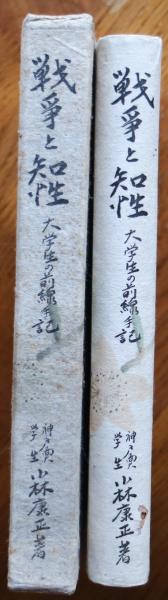 戦爭と知性
大学生の前線手記
学生
小林康正著
戦爭と知性
大学生の前線手記
学生
小林康正著